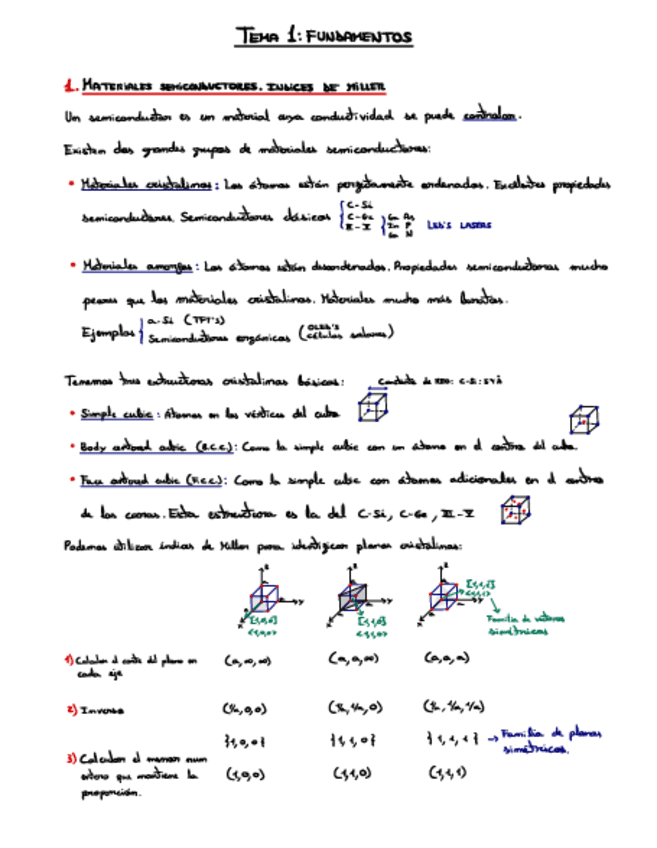 TEMA 1: FUNDAMENTOS
1. MATERIALES SEMICONDUCTORES. INDICES DE MILLER
Un semiconductor es un material cuya conductividad se puede controlar.
Existen dos grandes grupos de materiales semiconductores:
• Materiales cristalinos: Los átomos están perfectamente ordenados. Excelentes propiedades
semiconductoras. Semiconductores clásicos { C-Si
C-Ge
III-V { Ga As
In P
Ga N
LED'S LASERS
• Materiales amorfos: Los átomos están desordenados. Propiedades semiconductoras mucho
peores que los materiales cristalinos. Materiales mucho más baratos.
Ejemplos { a-Si (TFT's)
Semiconductores orgánicos (OLED's
células solares)
Tenemos tres estructuras cristalinas básicas:
de red: C-Si: 5,4 Å
• Simple cubic: Átomos en los vértices del cubo
• Body centred cubic (B.C.C.): Como la simple cubic con un átomo en el centro del cubo.
• Face centred cubic (F.C.C.): Como la simple cubic con átomos adicionales en el centro
de las caras. Esta estructura es la del C-Si, C-Ge, III-V
Podemos utilizar índices de Miller para identificar planos cristalinos:
z z z
y y y
x x x
[1,0,0] [1,1,0] [1,1,1]
<1,0,0> <1,1,0> <1,1,1>
Familia de vectores
simétricos
1) Calcular el corte del plano en
cada eje
(a,∞,∞) (a,a,∞) (a,a,a)
2) Inverso (1/a,0,0) (1/a,1/a,0) (1/a,1/a,1/a)
{1,0,0} {1,1,0} {1,1,1} → Familia de planos
simétricos.
3) Calcular el menor num
entero que mantiene la
proporción.
(1,0,0) (1,1,0) (1,1,1)